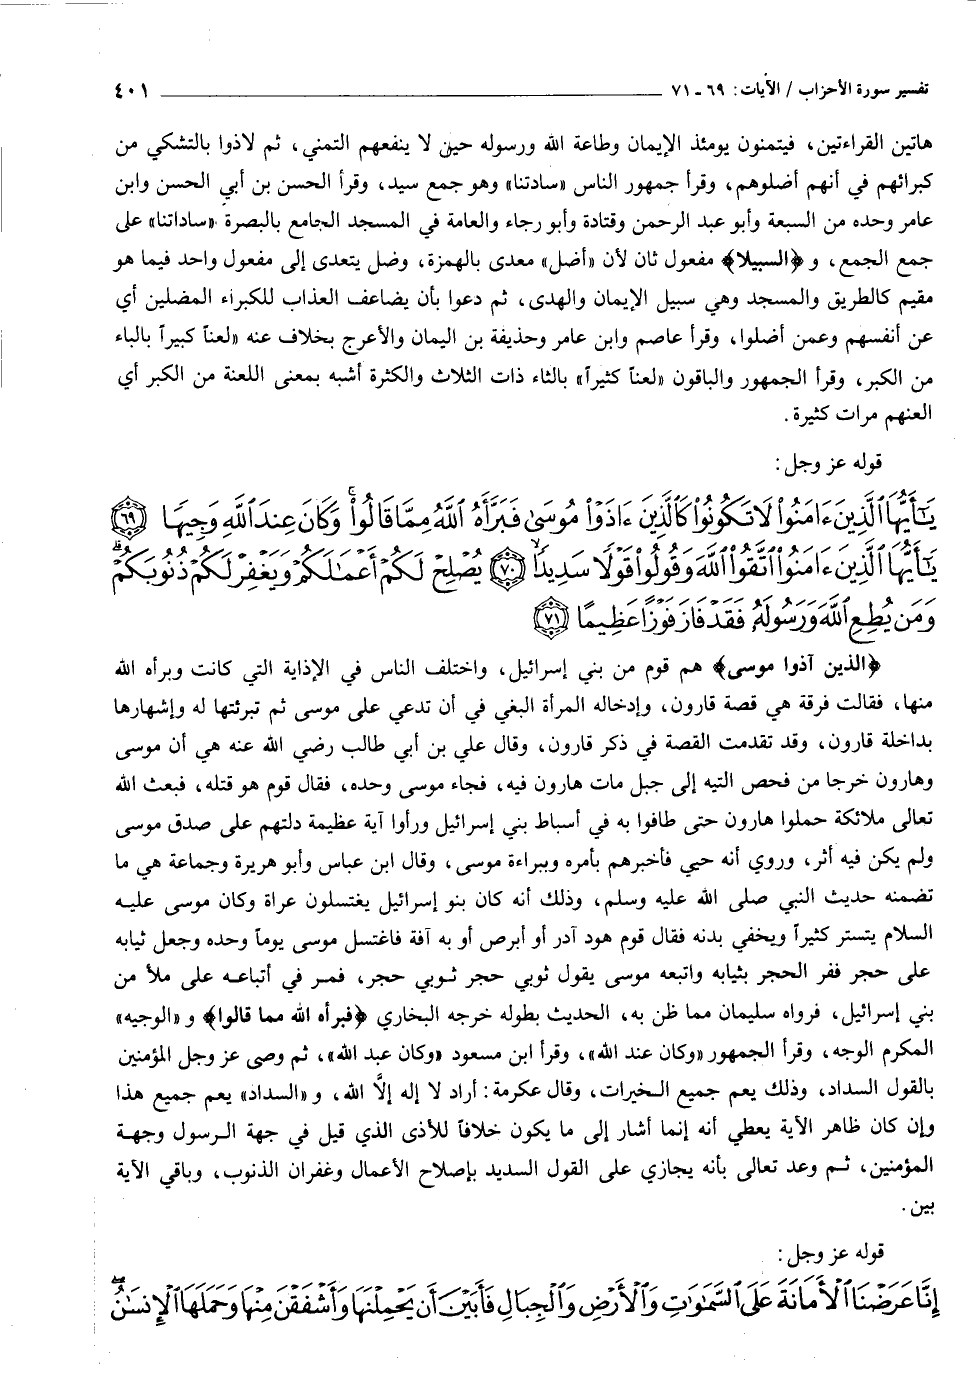 تفسير سورة الأحزاب / الآيات : ٦٩ - ٧١ ــــــــــــــــــــ ٤٠١
هاتين القراءتين، فيتمنون يومئذ الإيمان وطاعة الله ورسوله حين لا ينفعهم التمني، ثم لاذوا بالتشكي من
كبرائهم في أنهم أضلوهم، وقرأ جمهور الناس «سادتنا» وهو جمع سيد، وقرأ الحسن بن أبي الحسن وابن
عامر وحده من السبعة وأبو عبد الرحمن وقتادة وأبو رجاء والعامة في المسجد الجامع بالبصرة «ساداتنا» على
جمع الجمع، و ﴿السبيلا﴾ مفعول ثان لأن «أضل» معدى بالهمزة، وضل يتعدى إلى مفعول واحد فيما هو
مقيم كالطريق والمسجد وهي سبيل الإيمان والهدى، ثم دعوا بأن يضاعف العذاب للكبراء المضلين أي
عن أنفسهم وعمن أضلوا، وقرأ عاصم وابن عامر وحذيفة بن اليمان والأعرج بخلاف عنه «لعناً كبيراً بالباء
من الكبر، وقرأ الجمهور والباقون «لعناً كثيراً» بالثاء ذات الثلاث والكثرة أشبه بمعنى اللعنة من الكبر أي
العنهم مرات كثيرة.
قوله عز وجل:
يَٰٓأَيُّهَا ٱلَّذِينَ ءَامَنُواْ لَا تَكُونُواْ كَٱلَّذِينَ ءَاذَوْاْ مُوسَىٰ فَبَرَّأَهُ ٱللَّهُ مِمَّا قَالُواْۚ وَكَانَ عِندَ ٱللَّهِ وَجِيهًا ٦٩
يَٰٓأَيُّهَا ٱلَّذِينَ ءَامَنُواْ ٱتَّقُواْ ٱللَّهَ وَقُولُواْ قَوْلًا سَدِيدًا ٧٠ يُصْلِحْ لَكُمْ أَعْمَٰلَكُمْ وَيَغْفِرْ لَكُمْ ذُنُوبَكُمْۗ
وَمَن يُطِعِ ٱللَّهَ وَرَسُولَهُۥ فَقَدْ فَازَ فَوْزًا عَظِيمًا ٧١
﴿الذين آذوا موسى﴾ هم قوم من بني إسرائيل، واختلف الناس في الإذاية التي كانت وبرأه الله
منها، فقالت فرقة هي قصة قارون، وإدخاله المرأة البغي في أن تدعي على موسى ثم تبرئتها له وإشهارها
بداخلة قارون، وقد تقدمت القصة في ذكر قارون، وقال علي بن أبي طالب رضي الله عنه هي أن موسى
وهارون خرجا من فحص التيه إلى جبل مات هارون فيه، فجاء موسى وحده، فقال قوم هو قتله، فبعث الله
تعالى ملائكة حملوا هارون حتى طافوا به في أسباط بني إسرائيل ورأوا آية عظيمة دلتهم على صدق موسى
ولم يكن فيه أثر، وروي أنه حيي فأخبرهم بأمره وببراءة موسى، وقال ابن عباس وأبو هريرة وجماعة هي ما
تضمنه حديث النبي صلى الله عليه وسلم، وذلك أنه كان بنو إسرائيل يغتسلون عراة وكان موسى عليه
السلام يتستر كثيراً ويخفي بدنه فقال قوم هود آدر أو أبرص أو به آفة فاغتسل موسى يوماً وحده وجعل ثيابه
على حجر ففر الحجر بثيابه واتبعه موسى يقول ثوبي حجر ثوبي حجر، فمر في أتباعه على ملأ من
بني إسرائيل، فرواه سليمان مما ظن به، الحديث بطوله خرجه البخاري ﴿فبرأه الله مما قالوا﴾ و «الوجيه»
المكرم الوجه، وقرأ الجمهور «وكان عند الله»، وقرأ ابن مسعود «وكان عبد الله»، ثم وصى عز وجل المؤمنين
بالقول السداد، وذلك يعم جميع الخيرات، وقال عكرمة: أراد لا إله إلَّا الله، و «السداد» يعم جميع هذا
وإن كان ظاهر الآية يعطي أنه إنما أشار إلى ما يكون خلافاً للأذى الذي قيل في جهة الرسول وجهة
المؤمنين، ثم وعد تعالى بأنه يجازي على القول السديد بإصلاح الأعمال وغفران الذنوب، وباقي الآية
بين.
قوله عز وجل:
إِنَّا عَرَضْنَا ٱلْأَمَانَةَ عَلَى ٱلسَّمَٰوَٰتِ وَٱلْأَرْضِ وَٱلْجِبَالِ فَأَبَيْنَ أَن يَحْمِلْنَهَا وَأَشْفَقْنَ مِنْهَا وَحَمَلَهَا ٱلْإِنسَٰنُۖ